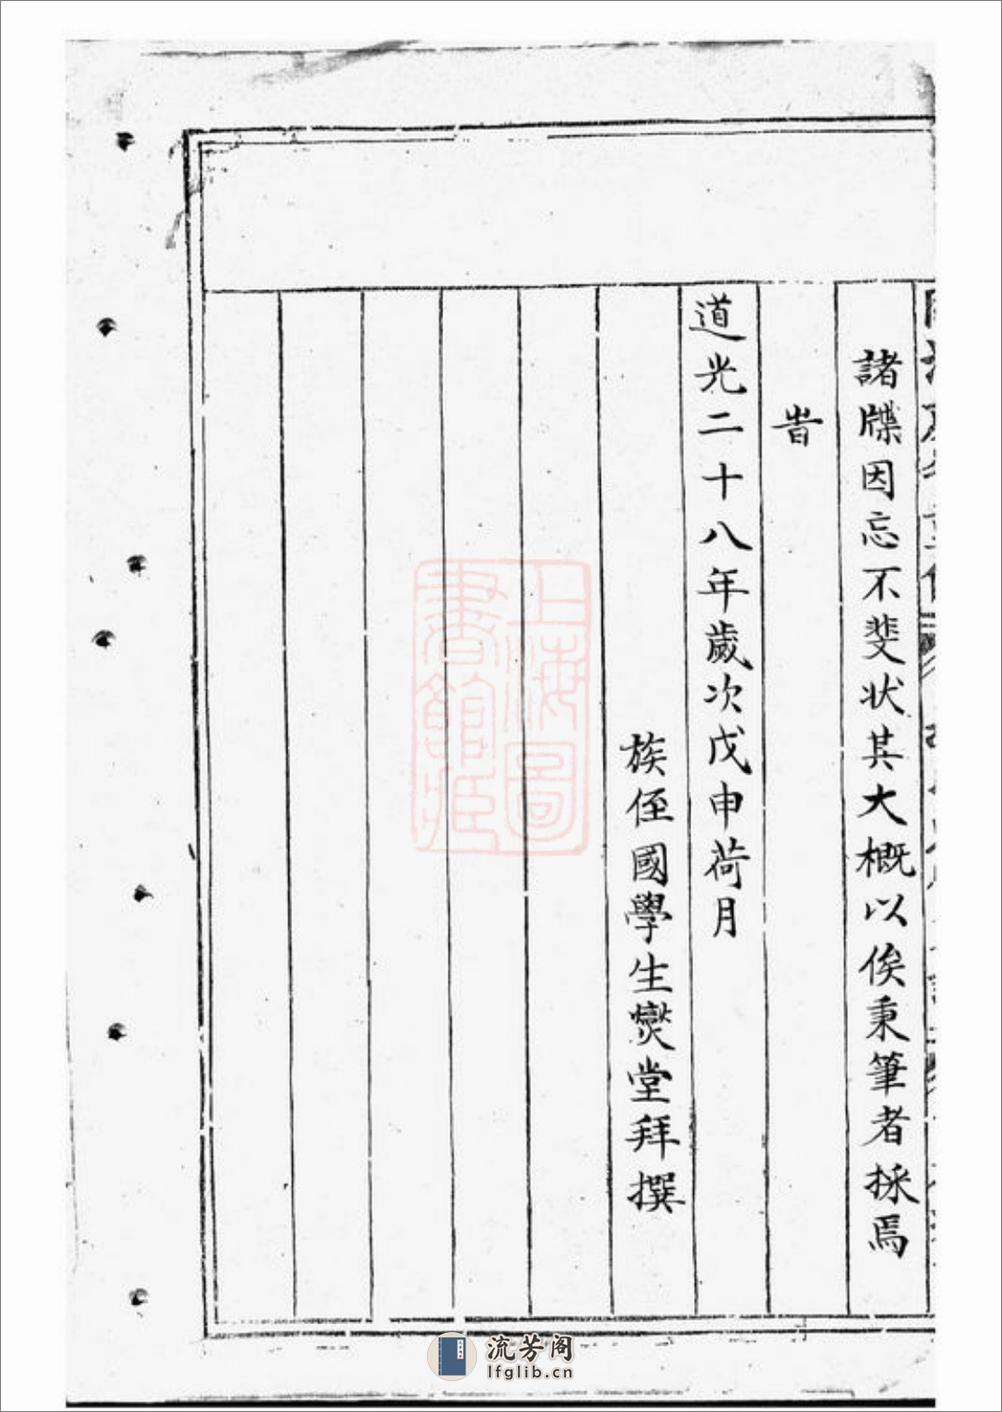 諸牒因忘不斐状其大概以俟秉筆者採焉
旹
道光二十八年歲次戊申荷月
族侄國學生爕堂拜撰
上海圖
書館藏
流芳阁
lfglib.cn